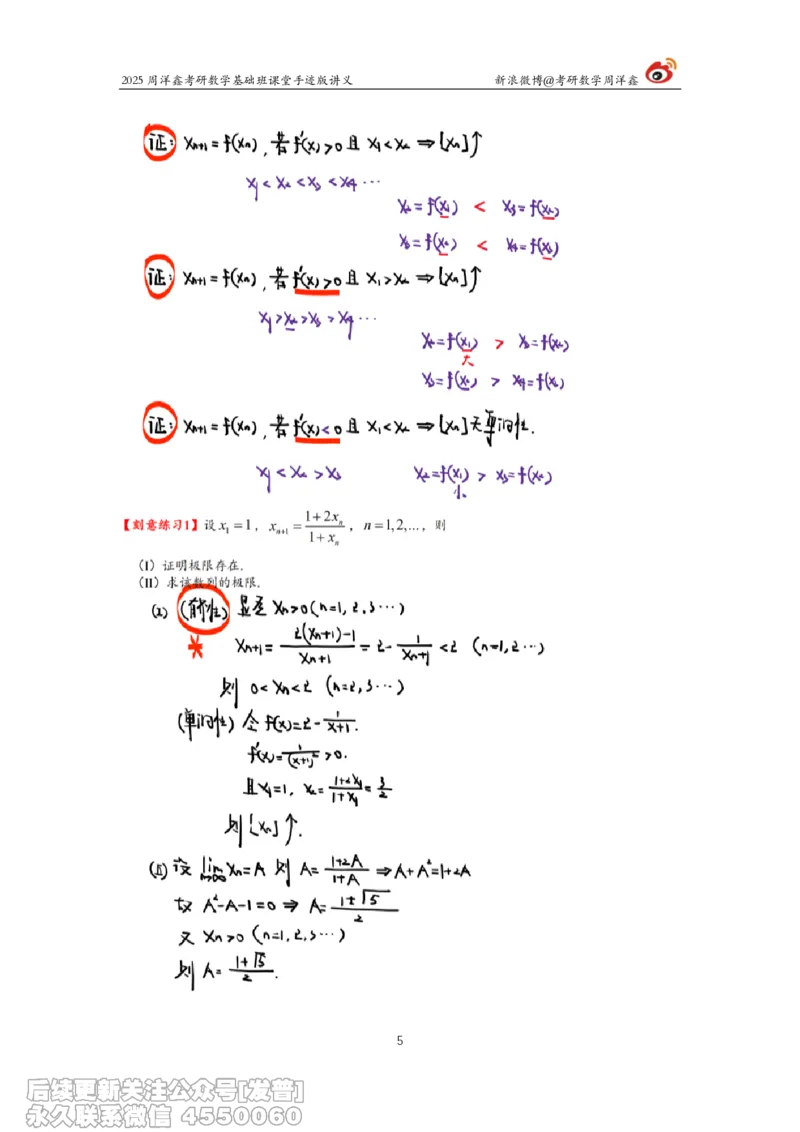 2025 周洋鑫考研数学基础班课堂手迹版讲义 新浪微博@考研数学周洋鑫
证: Xn+1 = f(Xn), 若 f'(x)>0 且 X1<X2 ⇒ {Xn}↑
X1 < X2 < X3 < X4 ⋯
X2 = f(X1) < X3 = f(X2)
X3 = f(X2) < X4 = f(X3)
证: Xn+1 = f(Xn), 若 f'(x)>0 且 X1>X2 ⇒ {Xn}↑
X1 > X2 > X3 > X4 ⋯
X2 = f(X1) > X3 = f(X2)
大
X3 = f(X2) > X4 = f(X3)
证: Xn+1 = f(Xn), 若 f'(x)<0 且 X1<X2 ⇒ {Xn}无单调性.
X1 < X2 > X3 X2 = f(X1) > X3 = f(X2)
小
【刻意练习1】设 x1 = 1, xn+1 = (1+2xn)/(1+xn), n = 1,2,..., 则
(I) 证明极限存在.
(II) 求该数列的极限.
(I) (有界性) 显然 Xn>0 (n=1, 2, 3 ⋯)
* Xn+1 = (2(Xn+1)-1)/(Xn+1) = 2 - 1/(Xn+1) < 2 (n=1, 2 ⋯)
则 0<Xn<2 (n=2, 3 ⋯)
(单调性) 令 f(x) = 2 - 1/(x+1).
f'(x) = 1/(x+1)² > 0.
且 X1=1, X2 = (1+2X1)/(1+X1) = 3/2
则 {Xn}↑.
(II) 设 lim n→∞ Xn = A 则 A = (1+2A)/(1+A) ⇒ A+A² = 1+2A
故 A²-A-1=0 ⇒ A = (1±√5)/2
又 Xn>0 (n=1, 2, 3 ⋯)
则 A = (1+√5)/2.
5
后续更新关注公众号[发普]
永久联系微信 4550060